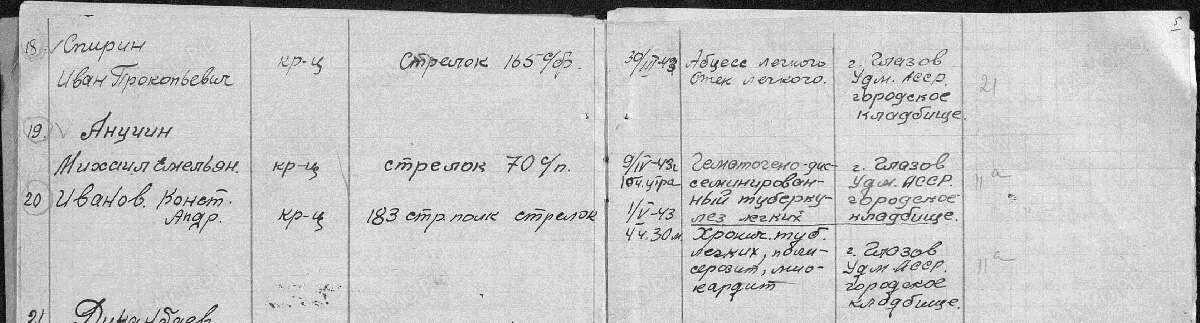 5
18. Спирин
Иван Прокопьевич
кр-ц
Стрелок 165 с/бр.
30/IV-43
Абцесс легкого
Отек легкого.
г. Глазов
Удм. АССР.
городское
кладбище.
21
19. Анучин
Михаил Емельян.
кр-ц
стрелок 70 с/п.
9/IV-43г
10ч.утра
Гематогено-дис-
семинирован-
ный туберку-
лез легких
г. Глазов
Удм. АССР.
городское
кладбище.
11а
20 Иванов. Конст.
Андр.
кр-ц
183 стр полк стрелок
1/V-43
4ч.30м.
Хронич. туб.
легких, поли-
серозит, мио-
кардит
г. Глазов
Удм. АССР.
городское
кладбище.
11а
21